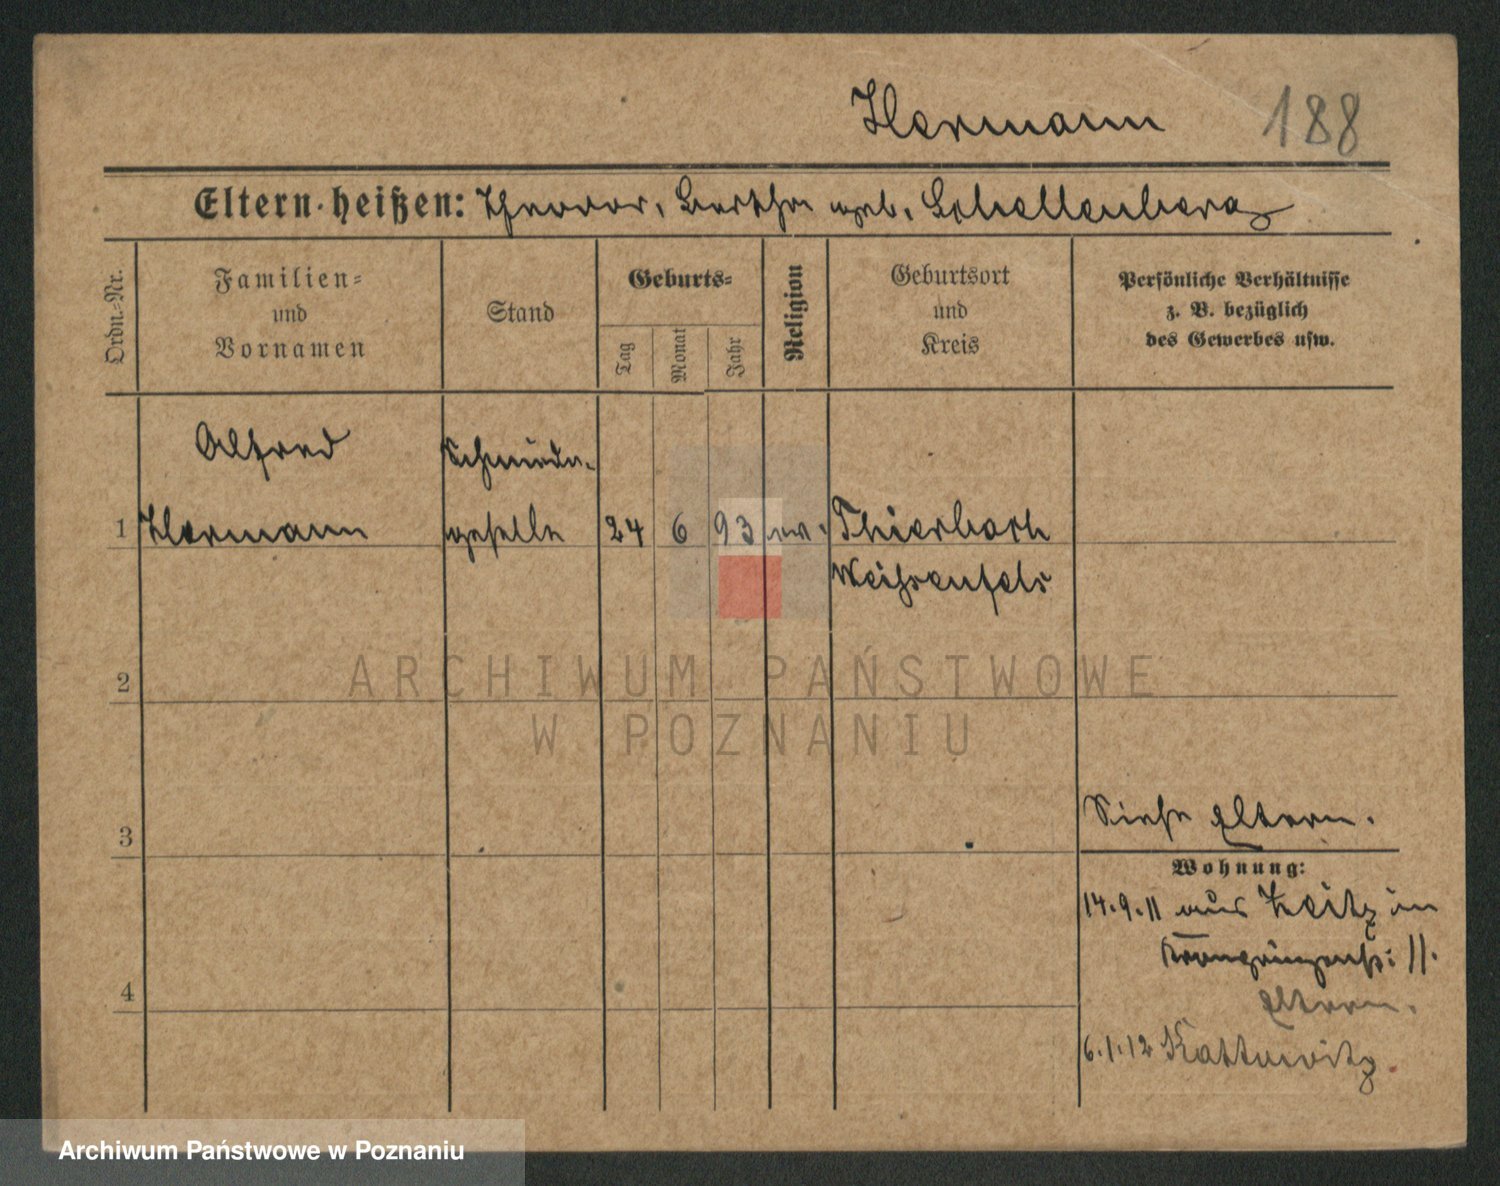 Hermann 188
Eltern heißen: Theodor, Bertha geb. Schellenberg
Ordn.-Nr.
Familien-
und
Vornamen
Stand
Geburts-
Tag
Monat
Jahr
Religion
Geburtsort
und
Kreis
Persönliche Verhältnisse
z. B. bezüglich
des Gewerbes usw.
Alfred
Schmiede-
1 Hermann geselle 24 6 93 ev. Thierbach
Weißenfels
2
3
Siehe Eltern.
Wohnung:
14.9.11 aus Zeitz in
Kronprinzenstr. 11.
4
Eltern.
6.1.12 Kattowitz.
ARCHIWUM PAŃSTWOWE
W POZNANIU
Archiwum Państwowe w Poznaniu